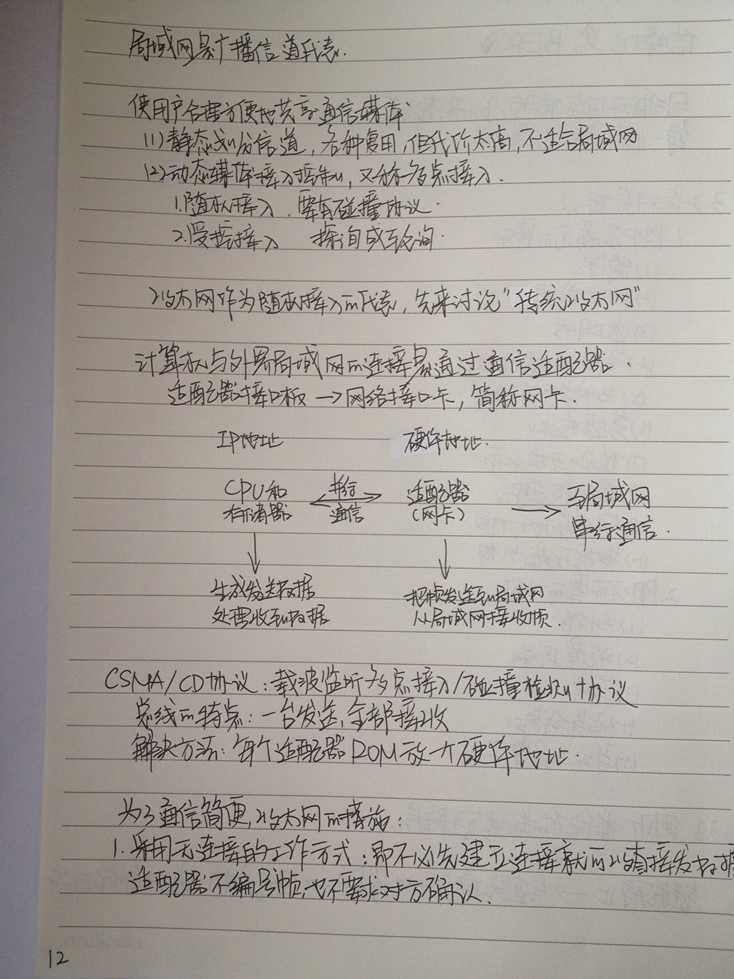 局域网是广播信道代表.
使用户合理方便地共享通信媒体
(1)静态划分信道，各种复用，但代价太高，不适合局域网
(2)动态媒体接入控制，又称多点接入.
1.随机接入. 要有碰撞协议.
2.受控接入 探询或轮询.
以太网作为随机接入的代表，先来讨论"传统以太网"
计算机与外界局域网的连接是通过通信适配器.
适配器接口板→网络接口卡，简称网卡.
IP地址 硬件地址.
CPU和 并行 适配器 与局域网
存储器 通信 (网卡) 串行通信.
生成发送数据 把帧发送到局域网
处理收到数据 从局域网接收帧.
CSMA/CD协议：载波监听多点接入/碰撞检测协议
总线的特点：一台发送，全部接收
解决方法：每个适配器ROM放一个硬件地址.
为了通信简便，以太网的措施：
1.采用无连接的工作方式：即不必先建立连接就可以直接发数据
适配器不编号帧，也不要求对方确认.
12